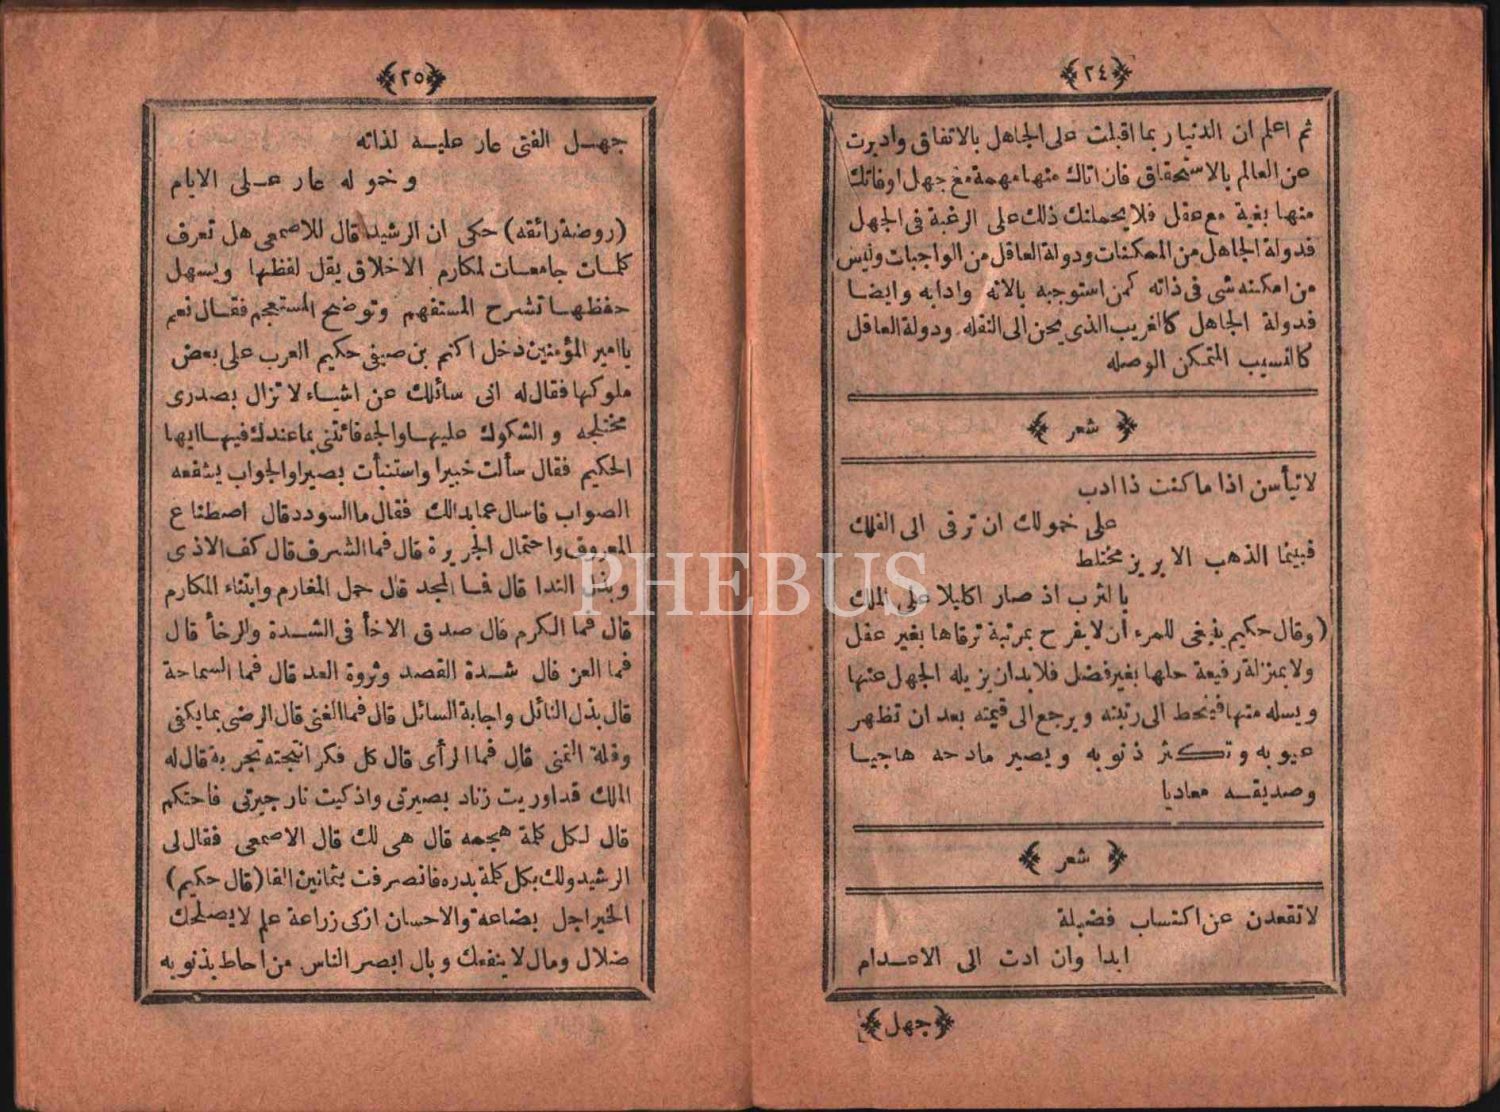 ٢٤
ثم اعلم ان الدنيا ربما اقبلت على الجاهل بالاتفاق وادبرت
عن العالم بالاستحقاق فان اتاك منها مهمة مع جهل او فاتك
منها بغية مع عقل فلا يحملنك ذلك على الرغبة فى الجهل
فدولة الجاهل من الممكنات ودولة العاقل من الواجبات وليس
من امكنه شى فى ذاته كمن استوجبه بالاته وادابه وايضا
فدولة الجاهل كالغريب الذى يحن الى النقله ودولة العاقل
كالنسيب المتمكن الوصله
شعر
لا تيأسن اذا ما كنت ذا ادب
على خمولك ان ترقى الى الفلك
فبينما الذهب الابريز مختلط
بالترب اذ صار اكليلا على الملك
(وقال حكيم ينبغى للمرء أن لا يفرح بمرتبة ترقاها بغير عقل
ولا بمنزلة رفيعة حلها بغير فضل فلا بد ان يزيله الجهل عنها
ويسله منها فينحط الى رتبته ويرجع الى قيمته بعد ان تظهر
عيوبه وتكثر ذنوبه ويصير مادحه هاجيا
وصديقه معاديا
شعر
لا تقعدن عن اكتساب فضيلة
ابدا وان ادت الى الاعدام
جهل
٢٥
جهل الفتى عار عليه لذاته
وخموله عار على الايام
(روضة رائقه) حكى ان الرشيد قال للاصمعى هل تعرف
كلمات جامعات لمكارم الاخلاق يقل لفظها ويسهل
حفظها تشرح المستفهم وتوضح المستعجم فقال نعم
يا امير المؤمنين دخل اكثم بن صيفى حكيم العرب على بعض
ملوكها فقال له انى سائلك عن اشياء لا تزال بصدرى
مختلجه والشكوك عليها والجه فائتنى بما عندك فيها ايها
الحكيم فقال سألت خبيرا واستنبأت بصيرا والجواب يشفعه
الصواب فاسال عما بدالك فقال ما السودد قال اصطناع
المعروف واحتمال الجريرة قال فما الشرف قال كف الاذى
وبذل الندا قال فما المجد قال حمل المغارم وابتناء المكارم
قال فما الكرم قال صدق الاخأ فى الشدة والرخأ قال
فما العز قال شدة القصد وثروة العد قال فما السماحة
قال بذل النائل واجابة السائل قال فما الغنى قال الرضى بما يكفى
وقلة التمنى قال فما الرأى قال كل فكر انتجته تجربة قال له
الملك قد اوريت زناد بصيرتى واذكيت نار حيرتى فاحتكم
قال لكل كلمة هجمه قال هى لك قال الاصمعى فقال لى
الرشيد ولك بكل كلمة بدره فانصرفت بثمانين الفا (قال حكيم)
الخير اجل بضاعة والاحسان ازكى زراعة علم لا يصلحك
ضلال ومال لا ينفعك وبال ابصر الناس من احاط بذنوبه
PHEBUS